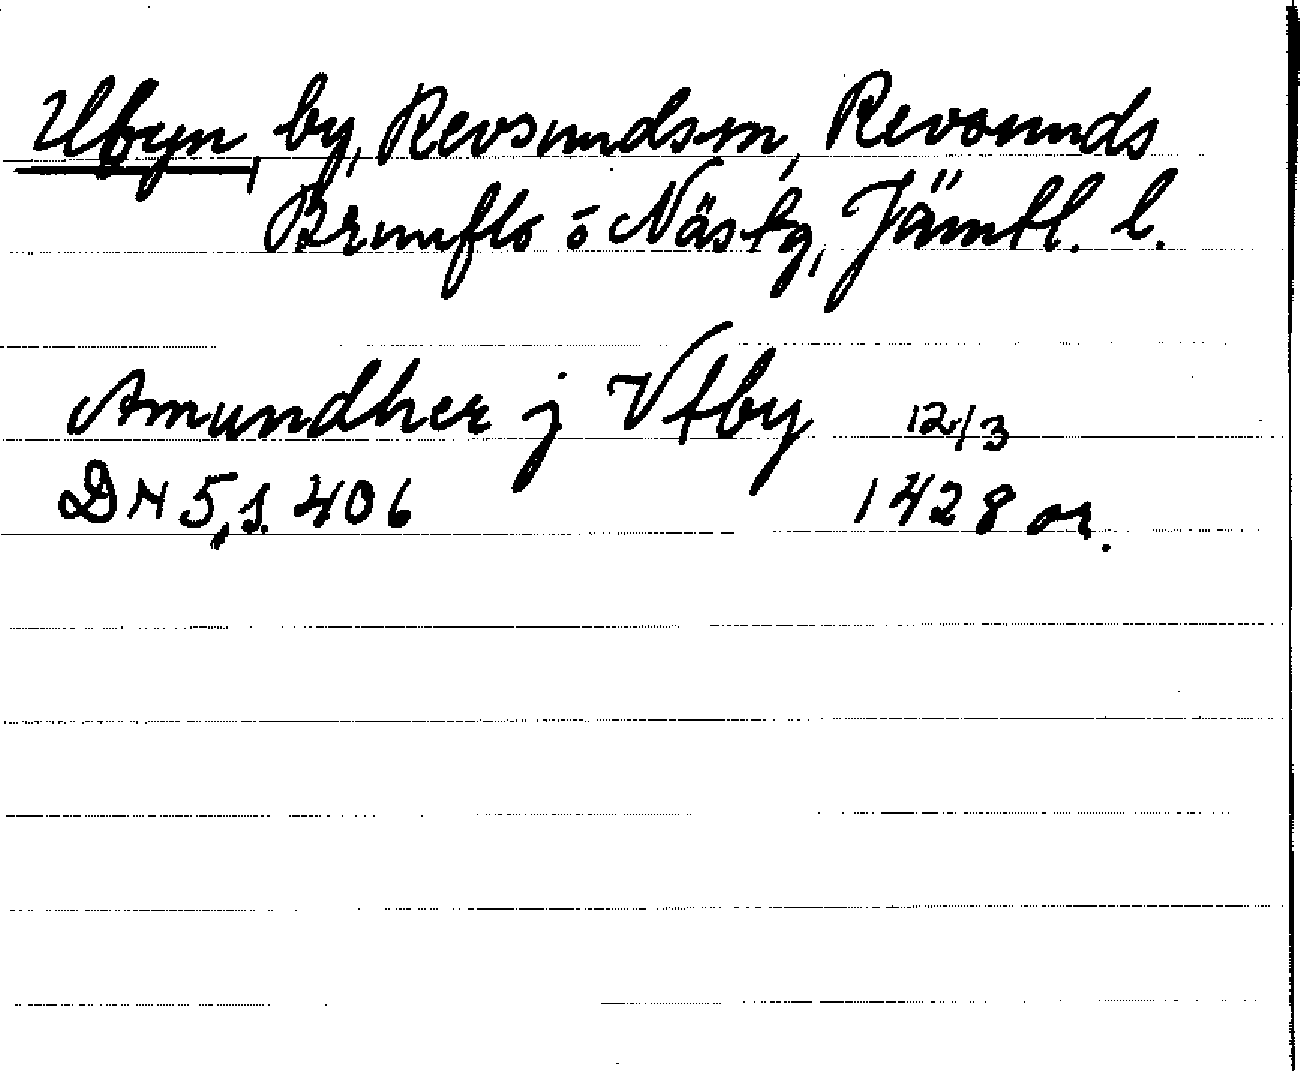 Utbyn by, Revsundsm, Revsunds
Brunflo o Näs tg, Jämtl. l.
Amundher j Vtby 12/3
DN 5, s. 406 1428 or.